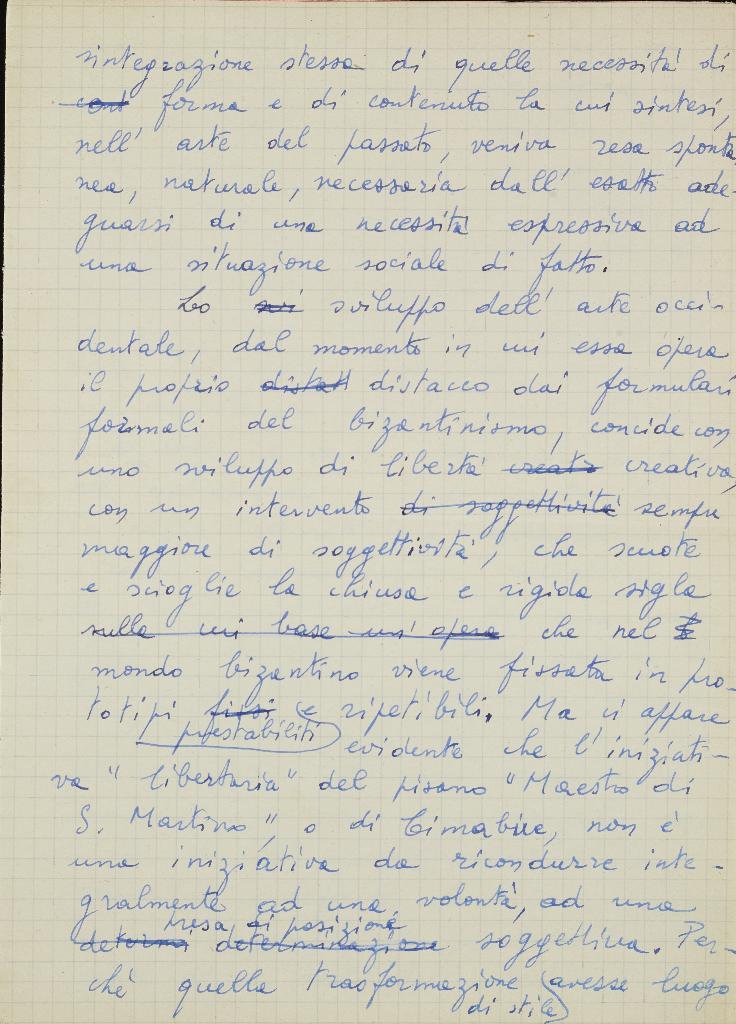 sintegrazione stessa di quelle necessità di
cont forma e di contenuto la cui sintesi,
nell' arte del passato, veniva resa sponta
nea, naturale, necessaria dall' esatto ade-
guarsi di una necessità espressiva ad
una situazione sociale di fatto.
Lo svi sviluppo dell' arte occi-
dentale, dal momento in cui essa opera
il proprio distatt distacco dai formulari
formali del bizantinismo, concide con
uno sviluppo di libertà creatr creativa,
con un intervento di soggettività sempre
maggiore di soggettività, che scuote
e scioglie la chiusa e rigida sigla
sulla cui base un' opera che nel
mondo bizantino viene fissata in pro-
totipi fissi e ripetibili. Ma ci appare
prestabiliti
evidente che l' iniziati-
va "libertaria" del pisano "Maestro di
S. Martino", o di Cimabue, non è
una iniziativa da ricondurre inte-
gralmente ad una volontà, ad una
presa di posizione
determi determinazione soggettiva. Per-
chè quella trasformazione avesse luogo
di stile